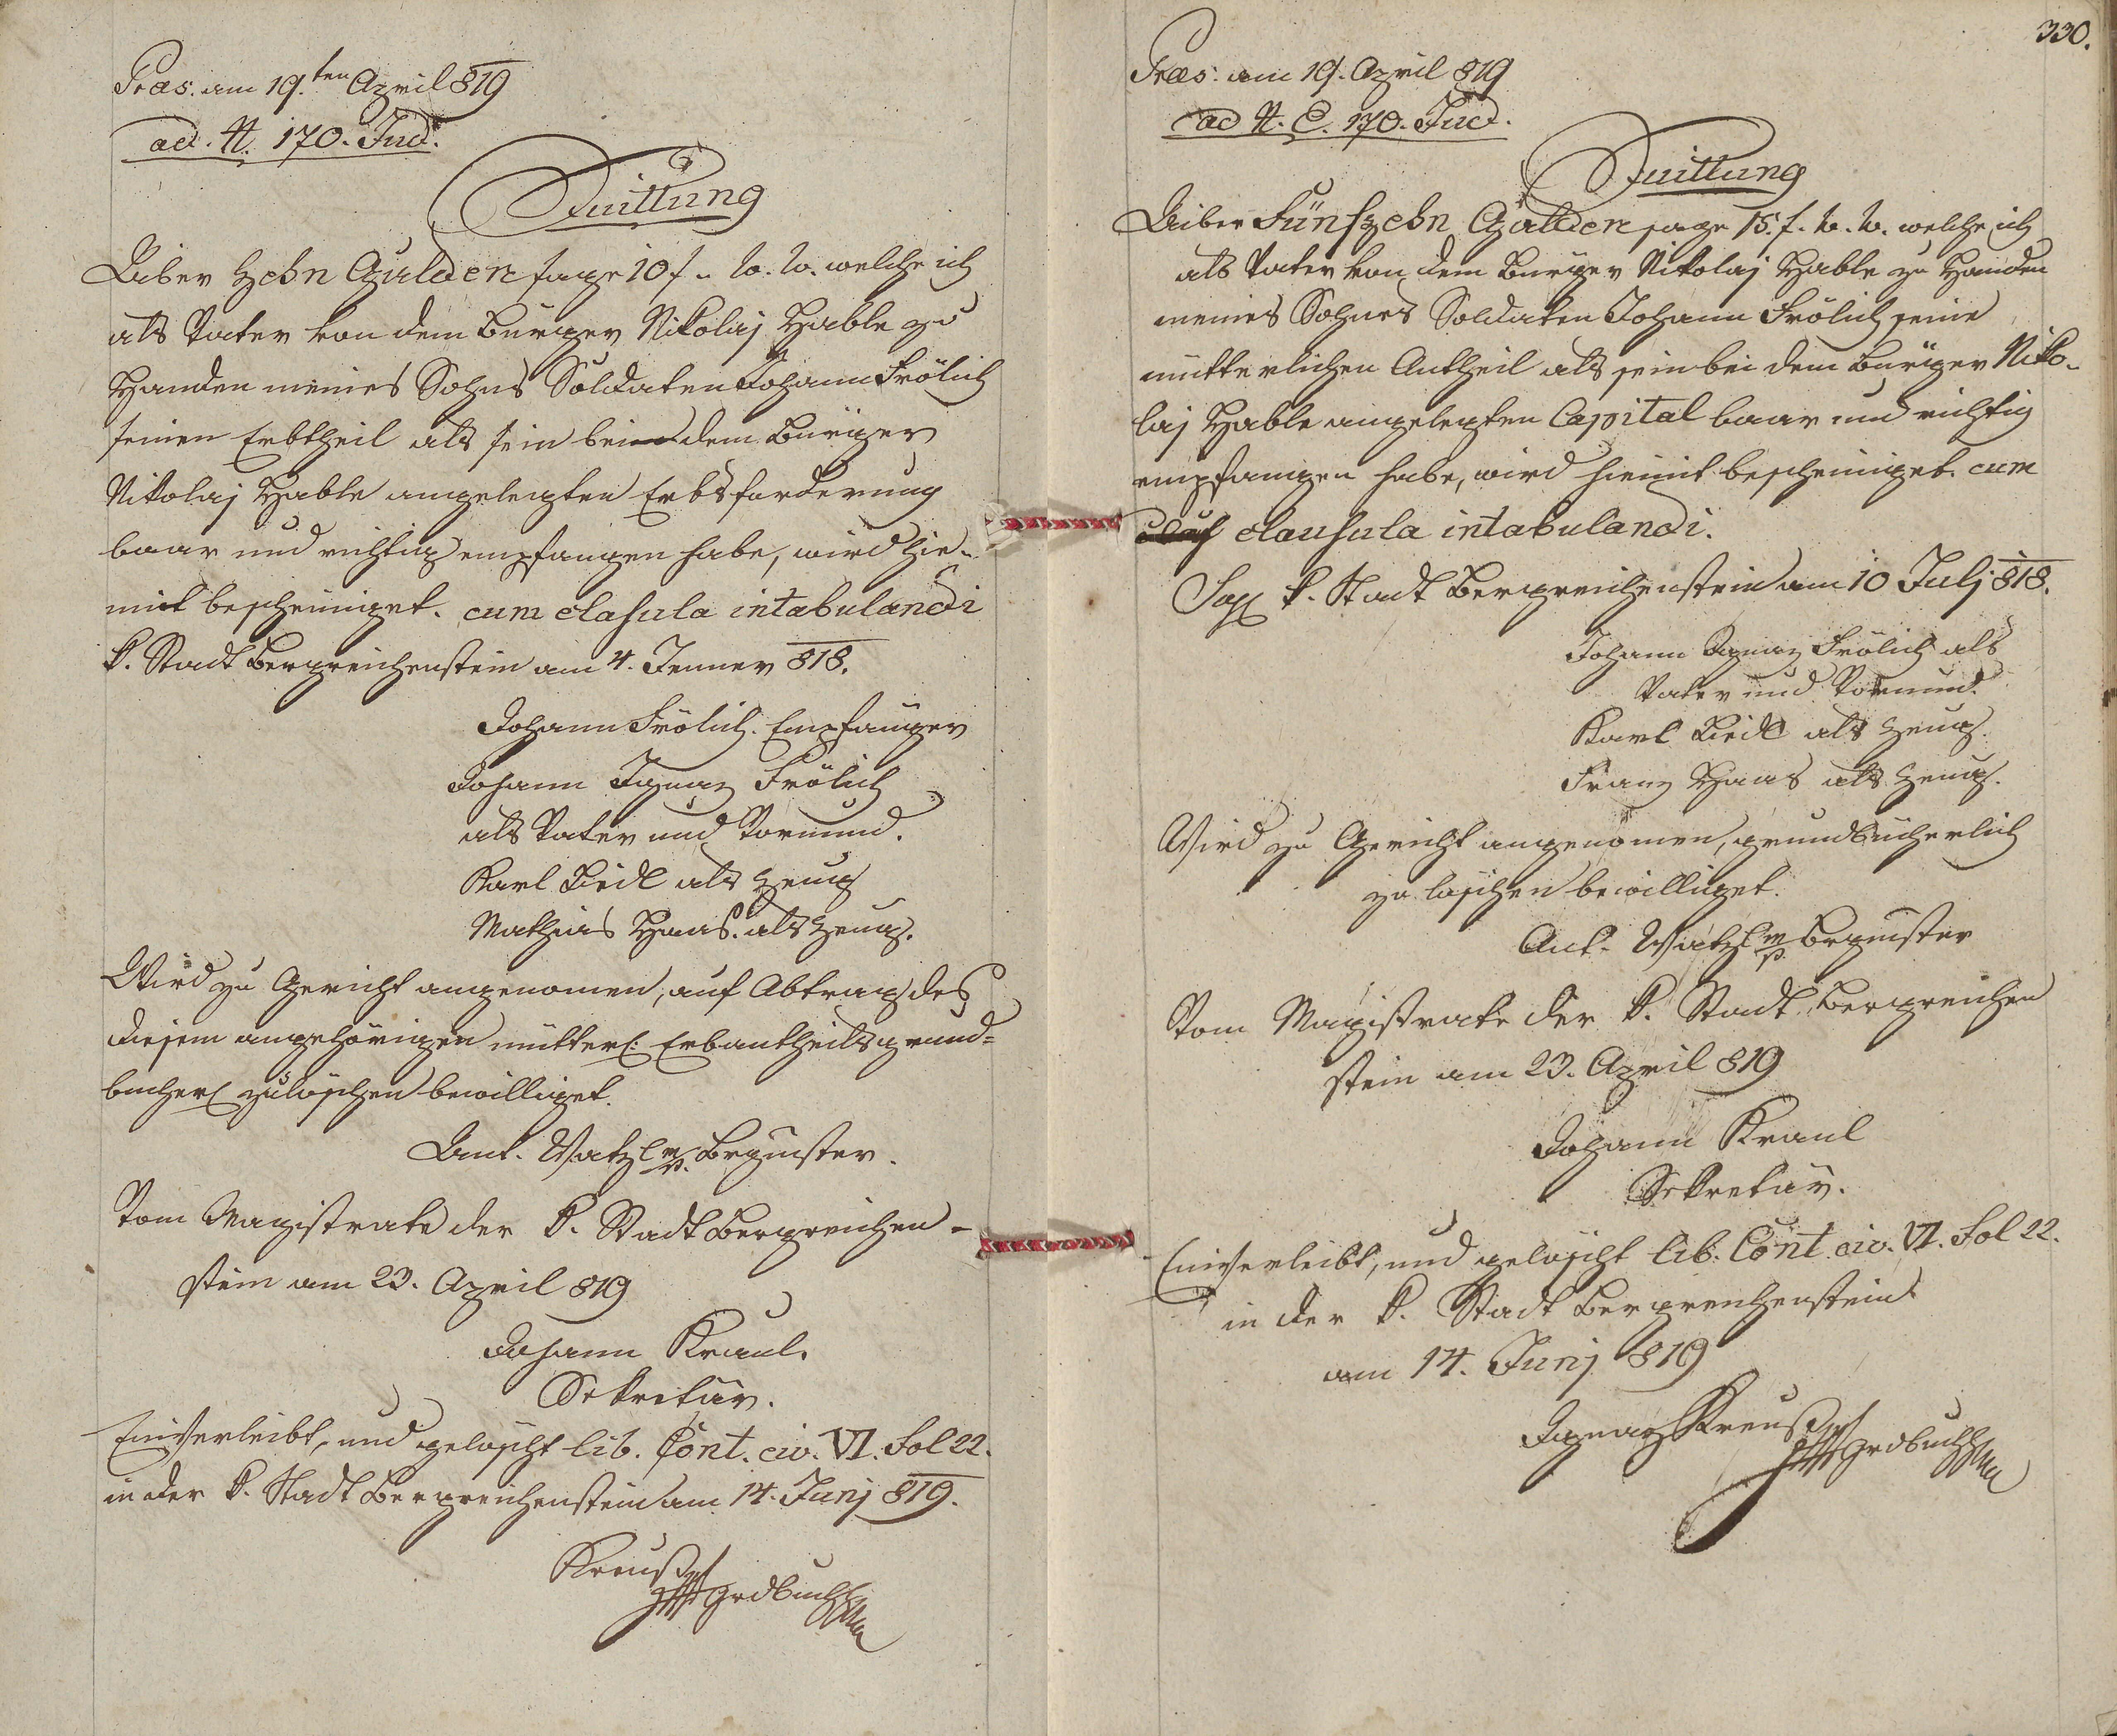 Præs. am 19.ten April 819
ad. N. 170. Jud.
Quittung
Uiber Zehn Gulden sage 10 f. W. W. welche ich
als Vater von dem Bürger Nikolaj Hable zu
Handen meines Sohns Soldaten Johann Frölich
seinen Erbtheil als sein bei dem Bürger
Nikolaj Hable angelegten Erbsforderung
baar und richtig empfangen habe, wird hie-
mit bescheiniget. cum clasula intabulandi
K. Stadt Bergreichenstein am 4. Jenner 818.
Johann Frölich. Empfänger
Johann Ignaz Frölich
als Vater und Vormund.
Karl Liedl als Zeug
Mathias Haas. als Zeug.
Wird zu Gericht angenomen, auf Abtrag des
diesem angehörigen mütterl: Erbantheils grund=
bücherl zu löschen bewilliget.
Ant. Watzl mp. Brgmster.
Vom Magistrate der K. Stadt Bergreichen-
stein am 23. April 819
Johann Kraul.
Sekretär.
Einverleibt, und gelöscht lib. Cont. civ. VI. Fol 22.
in der K. Stadt Bergreichenstein am 14. Junj 819.
Kreuß
Grdbuchh
330.
Præs. am 19. April 819
ad N. E. 170. Jud.
Quittung
Uiber Fünfzehn Gulden sage 15. f. W. W. welche ich
als Vater von dem Bürger Nikolaj Hable zu Handen
meines Sohnes Soldaten Johann Frölich seine
mütterlichen Antheil als sein bei dem Bürger Niko-
laj Hable angelegten Capital baar und richtig
empfangen habe, wird hiemit bescheiniget. cum
clausula intabulandi.
K. Stadt Bergreichenstein am 10 Julj 818.
Johann Ignaz Frölich als
Vater und Vormund.
Karl Liedl als Zeug.
Franz Haas als Zeug.
Wird zu Gericht angenomen, grundbücherlich
zu löschen bewilliget.
Ant. Watzl mp. Brgmster
Vom Magistrate der K. Stadt Bergreichen
stein am 23. April 819
Johann Kraul
Sekretär.
Einverleibt, und gelöscht lib. Cont. civ. VI. Fol 22.
in der K. Stadt Bergreichenstein
am 14. Junj 819
Ignaz Kreuß
Grdbuchh